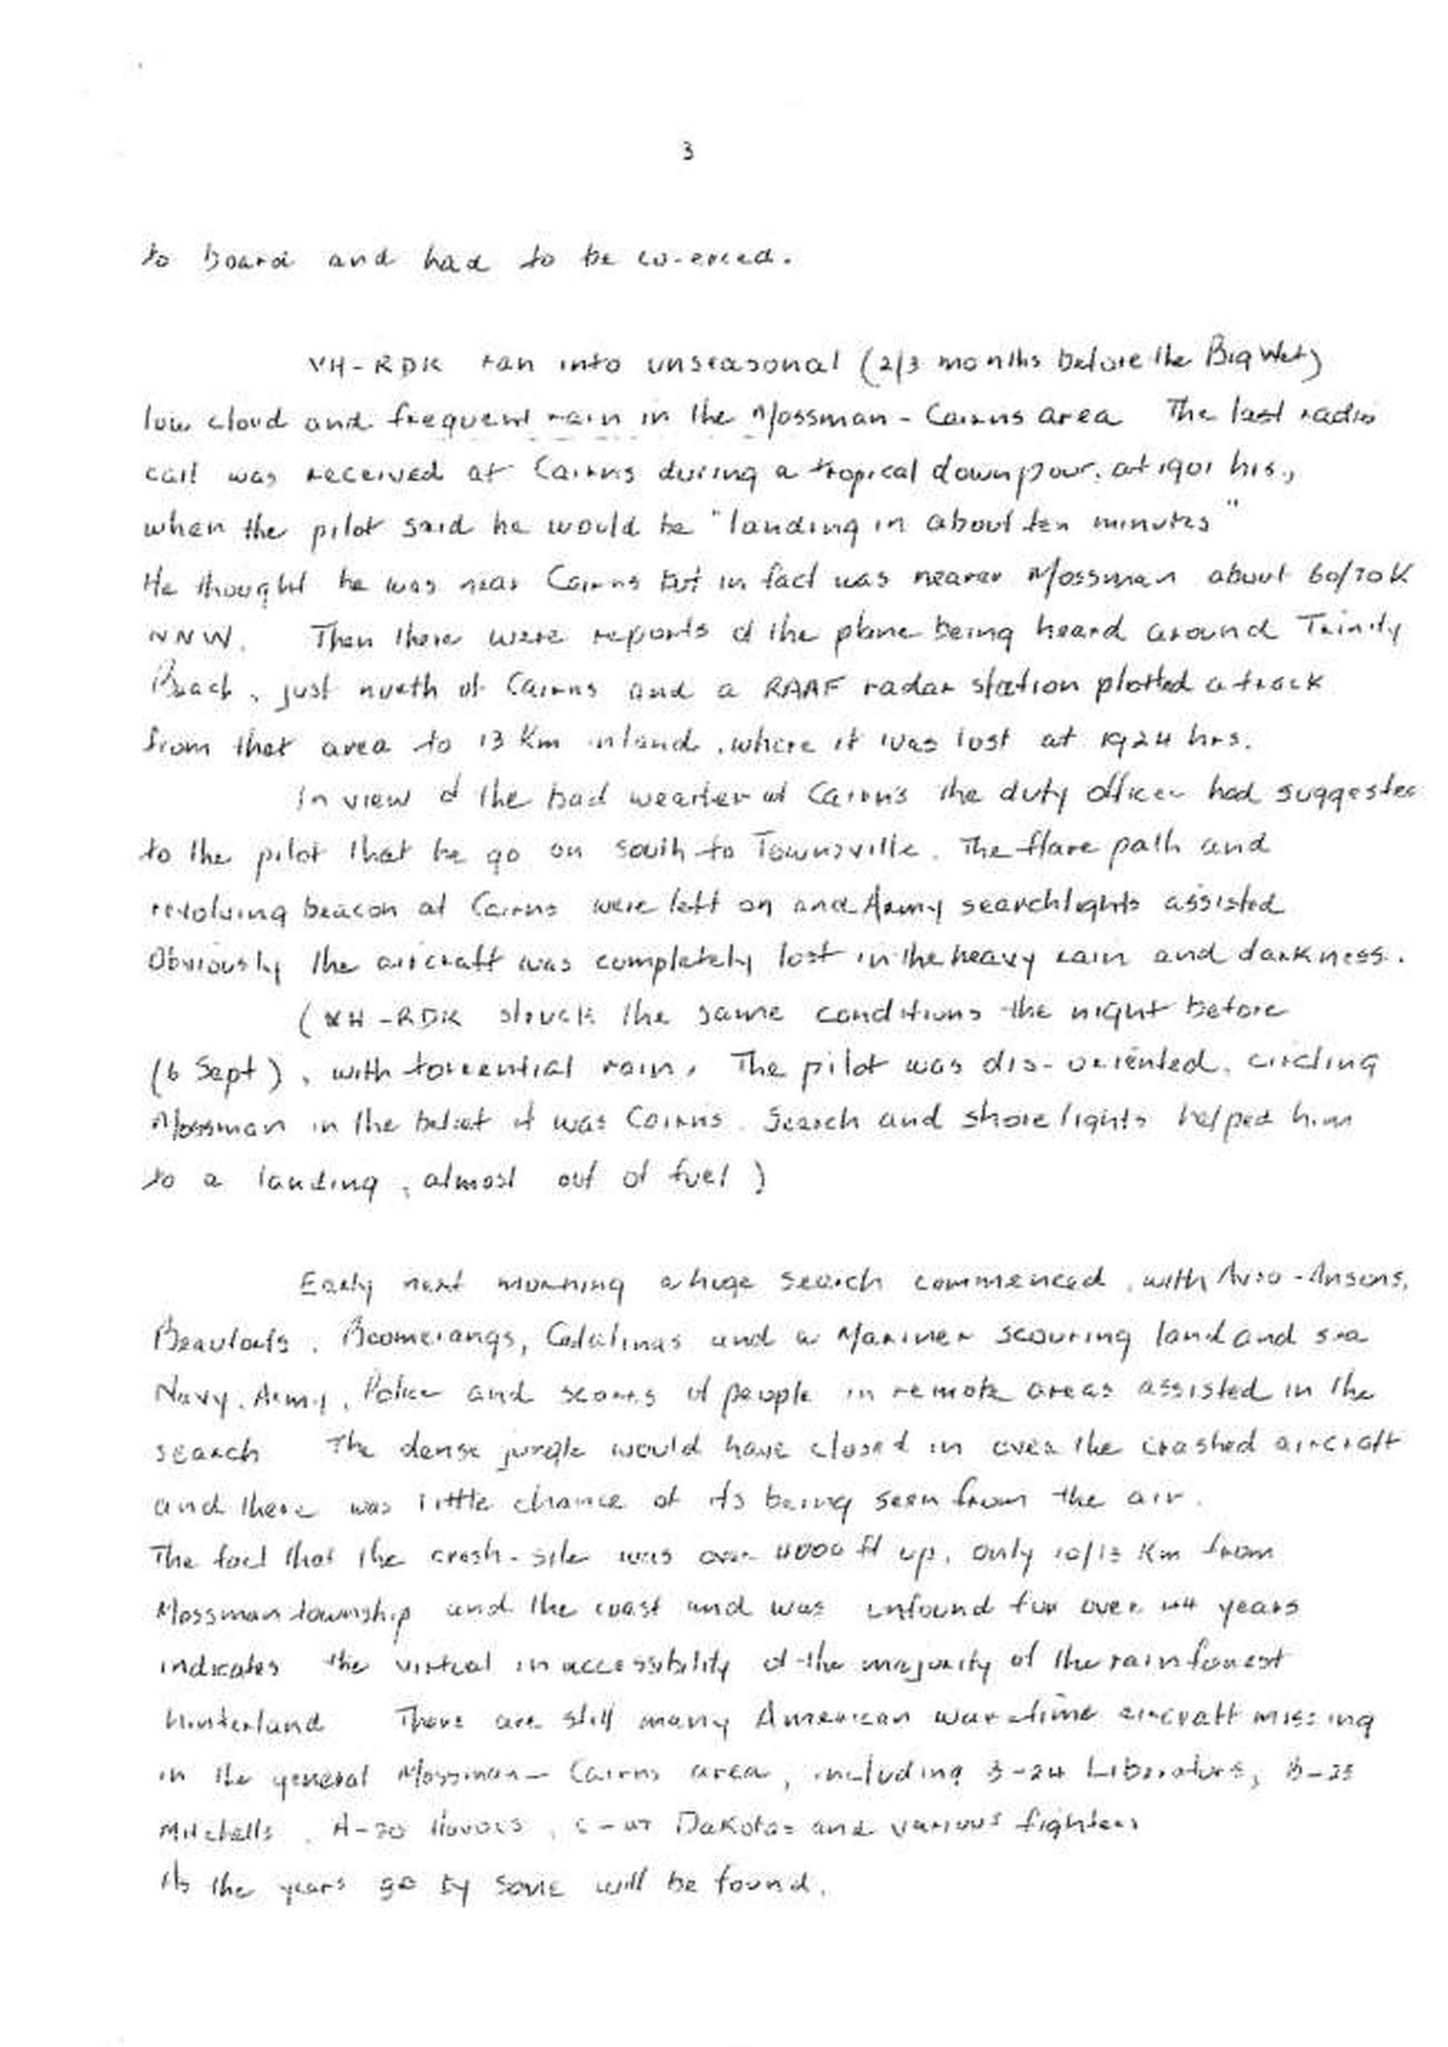 3
to board and had to be co-erced.
VH-RDK ran into unseasonal (2/3 months before the Big Wet)
low cloud and frequent rain in the Mossman - Cairns area The last radio
call was received at Cairns during a tropical downpour, at 1901 hrs.,
when the pilot said he would be "landing in about ten minutes"
He thought he was near Cairns but in fact was nearer Mossman about 60/70K
NNW. Then there were reports of the plane being heard around Trinity
Beach, just north of Cairns and a RAAF radar station plotted a track
from that area to 13 Km inland, where it was lost at 1924 hrs.
In view of the bad weather at Cairns the duty officer had suggested
to the pilot that he go on south to Townsville. The flare path and
revolving beacon at Cairns were left on and Army searchlights assisted
Obviously the aircraft was completely lost in the heavy rain and darkness.
(VH-RDK struck the same conditions the night before
(6 Sept), with torrential rain. The pilot was dis-oriented, circling
Mossman in the belief it was Cairns. Search and shore lights helped him
to a landing, almost out of fuel)
Early next morning a huge search commenced, with Avro-Ansons,
Beauforts, Boomerangs, Catalinas and a Mariner scouring land and sea
Navy, Army, Police and scores of people in remote areas assisted in the
search The dense jungle would have closed in over the crashed aircraft
and there was little chance of its being seen from the air.
The fact that the crash-site was over 4000 ft up, only 10/13 Km from
Mossman township and the coast and was unfound for over 44 years
indicates the virtual inaccessibility of the majority of the rainforest
hinterland There are still many American war-time aircraft missing
in the general Mossman - Cairns area, including B-24 Liberators, B-25
Mitchells, A-20 Havocs, C-47 Dakotas and various fighters
As the years go by some will be found.